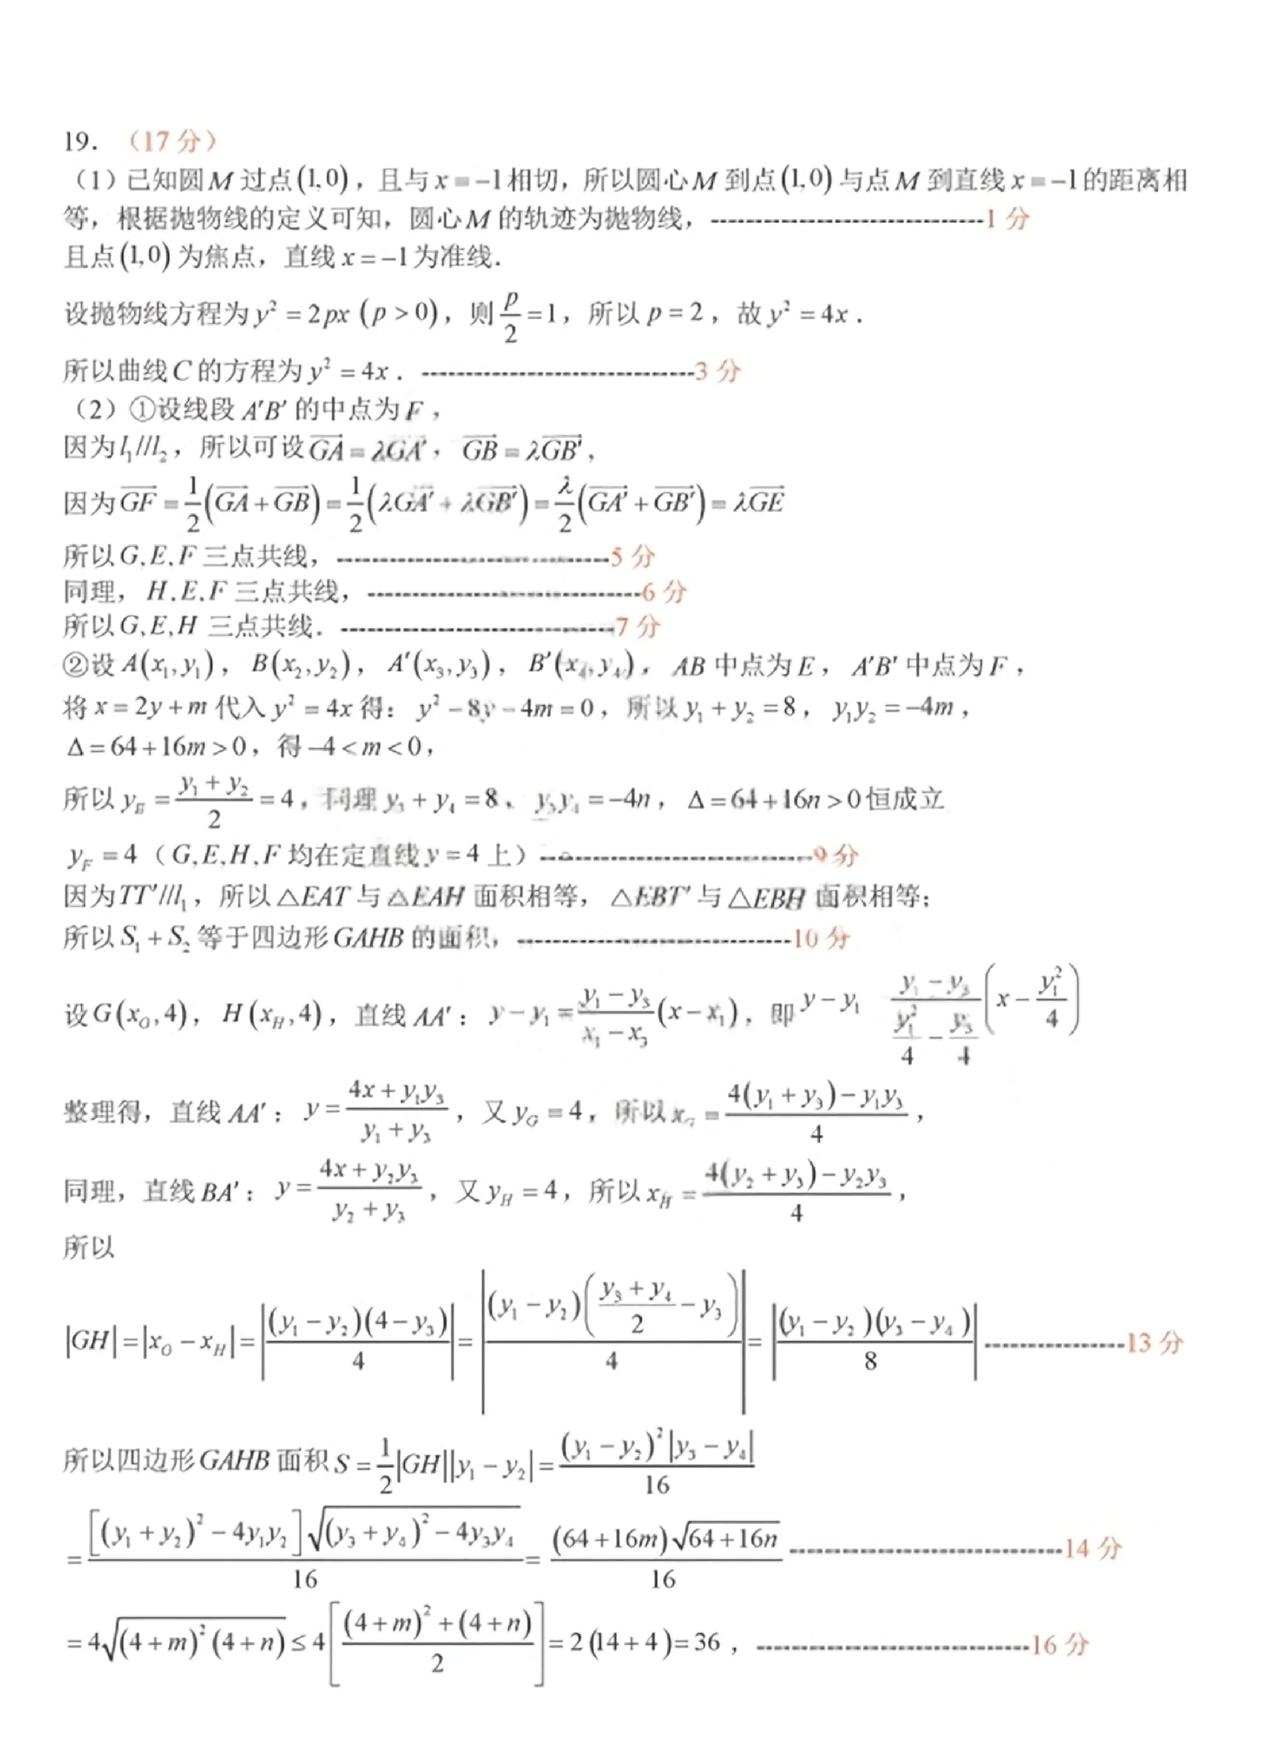 19. (17 分)
(1) 已知圆 M 过点 (1,0)，且与 x = −1 相切，所以圆心 M 到点 (1,0) 与点 M 到直线 x = −1 的距离相
等，根据抛物线的定义可知，圆心 M 的轨迹为抛物线，------------------------------1 分
且点 (1,0) 为焦点，直线 x = −1 为准线．
设抛物线方程为 y² = 2px (p > 0)，则 p/2 = 1，所以 p = 2，故 y² = 4x．
所以曲线 C 的方程为 y² = 4x．------------------------------3 分
(2) ①设线段 A′B′ 的中点为 F，
因为 l₁//l₂，所以可设 GA→ = λGA′→，GB→ = λGB′→，
因为 GF→ = 1/2(GA→ + GB→) = 1/2(λGA′→ + λGB′→) = λ/2(GA′→ + GB′→) = λGE→
所以 G,E,F 三点共线，------------------------------5 分
同理，H,E,F 三点共线，------------------------------6 分
所以 G,E,H 三点共线．------------------------------7 分
②设 A(x₁,y₁)，B(x₂,y₂)，A′(x₃,y₃)，B′(x₄,y₄)，AB 中点为 E，A′B′ 中点为 F，
将 x = 2y + m 代入 y² = 4x 得：y² − 8y − 4m = 0，所以 y₁ + y₂ = 8，y₁y₂ = −4m，
Δ = 64 + 16m > 0，得 −4 < m < 0，
所以 y_E = (y₁ + y₂)/2 = 4，同理 y₃ + y₄ = 8、y₃y₄ = −4n，Δ = 64 + 16n > 0 恒成立
y_F = 4（G,E,H,F 均在定直线 y = 4 上）------------------------------9 分
因为 TT′//l₁，所以 △EAT 与 △EAH 面积相等，△EBT′ 与 △EBH 面积相等；
所以 S₁ + S₂ 等于四边形 GAHB 的面积，------------------------------10 分
设 G(x_G,4)，H(x_H,4)，直线 AA′：y − y₁ = (y₁ − y₃)/(x₁ − x₃)(x − x₁)，即 y − y₁ (y₁ − y₃)/(y₁²/4 − y₃/4)(x − y₁²/4)
整理得，直线 AA′：y = (4x + y₁y₃)/(y₁ + y₃)，又 y_G = 4，所以 x_G = (4(y₁ + y₃) − y₁y₃)/4，
同理，直线 BA′：y = (4x + y₂y₃)/(y₂ + y₃)，又 y_H = 4，所以 x_H = (4(y₂ + y₃) − y₂y₃)/4，
所以
|GH| = |x_G − x_H| = |(y₁ − y₂)(4 − y₃)/4| = |(y₁ − y₂)((y₃ + y₄)/2 − y₃)/4| = |(y₁ − y₂)(y₃ − y₄)/8|---------------13 分
所以四边形 GAHB 面积 S = 1/2|GH||y₁ − y₂| = (y₁ − y₂)²|y₃ − y₄|/16
= [(y₁ + y₂)² − 4y₁y₂]√((y₃ + y₄)² − 4y₃y₄)/16 = (64 + 16m)√(64 + 16n)/16------------------------------14 分
= 4√((4 + m)²(4 + n)) ≤ 4[((4 + m)² + (4 + n))/2] = 2(14 + 4) = 36，------------------------------16 分